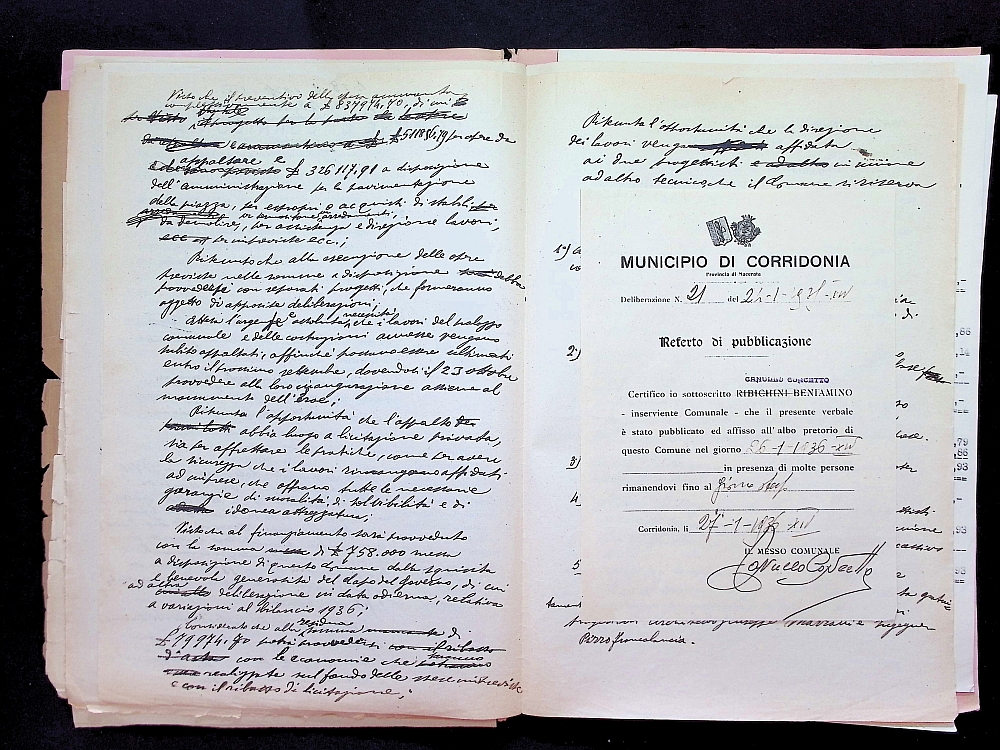 Visto che il preventivo delle opere ammontano
complessivamente a £ 837974.70, di cui
£ 511856,79 per opere da
appaltare e
£ 326117.91 a disposizione
dell'amministrazione per la pavimentazione
della piazza, per espropri e acquisti di stabili
da demolire, per assistenza e direzione lavori,
per imprevisti ecc.;
Ritenuto che alla esecuzione delle opere
previste nelle somme a disposizione debba
provvedersi con separati progetti, che formeranno
oggetto di apposite deliberazioni;
Attesa l'urgente e assoluta necessità che i lavori del palazzo
comunale e delle costruzioni annesse vengano
subito appaltati, affinché possano essere ultimati
entro il prossimo settembre, dovendosi il 23 ottobre
provvedere alla loro inaugurazione assieme al
monumento dell'Eroe;
Ritenuta l'opportunità che l'appalto
abbia luogo a licitazione privata,
sia per affrettare le pratiche, come per avere
la sicurezza che i lavori rimangano affidati
ad imprese, che offrano tutte le necessarie
garanzie di moralità, di solvibilità e di
idonea attrezzatura;
Visto che al finanziamento sarà provveduto
con la somma di £ 758.000 messa
a disposizione di questo Comune dalla squisita
e benevola generosità del Capo del Governo, di cui
ad altra deliberazione in data odierna, relativa
a variazioni al bilancio 1936;
Considerato che alla residua somma di
£ 79974.70 potrà provvedersi
con le economie che saranno
realizzate sul fondo delle
e con il ribasso di licitazione;
Ritenuta l'opportunità che la direzione
dei lavori venga affidata
ai due progettisti in unione
ad altro tecnico che il Comune si riserva
1°)
2°)
3)
4
5
MUNICIPIO DI CORRIDONIA
Provincia di Macerata
Deliberazione N. 21 del 24-1-1936-XIV
Referto di pubblicazione
CANULLO CONCETTO
Certifico io sottoscritto RIBICHINI BENIAMINO
- inserviente Comunale - che il presente verbale
è stato pubblicato ed affisso all'albo pretorio di
questo Comune nel giorno 26-1-1936-XIV
in presenza di molte persone
rimanendovi fino al giorno stesso
Corridonia, li 27-1-1936-XIV
IL MESSO COMUNALE
Canullo Concetto
ingegner
Pozzo Francalancia.